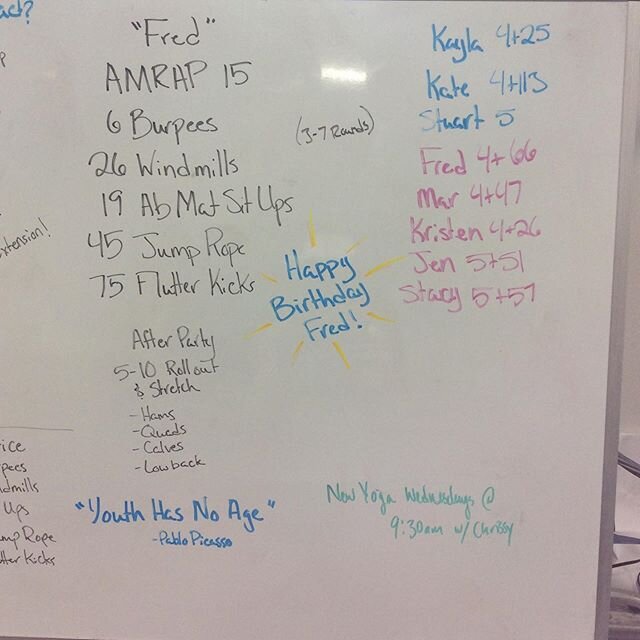 "Fred"
AMRAP 15
6 Burpees
(3-7 Rounds)
26 Windmills
19 Ab Mat Sit Ups
45 Jump Rope
75 Flutter Kicks
Happy
Birthday
Fred!
After Party
5-10 Roll out
& Stretch
- Hams
- Quads
- Calves
- Low back
"Youth Has No Age"
- Pablo Picasso
Kayla 4+25
Kate 4+113
Stuart 5
Fred 4+66
Mar 4+47
Kristen 4+26
Jen 5+51
Stacy 5+57
New Yoga Wednesdays @
9:30am w/ Chrissy
xtension!
rice
pees
dmills
Ups
mp Rope
tter Kicks